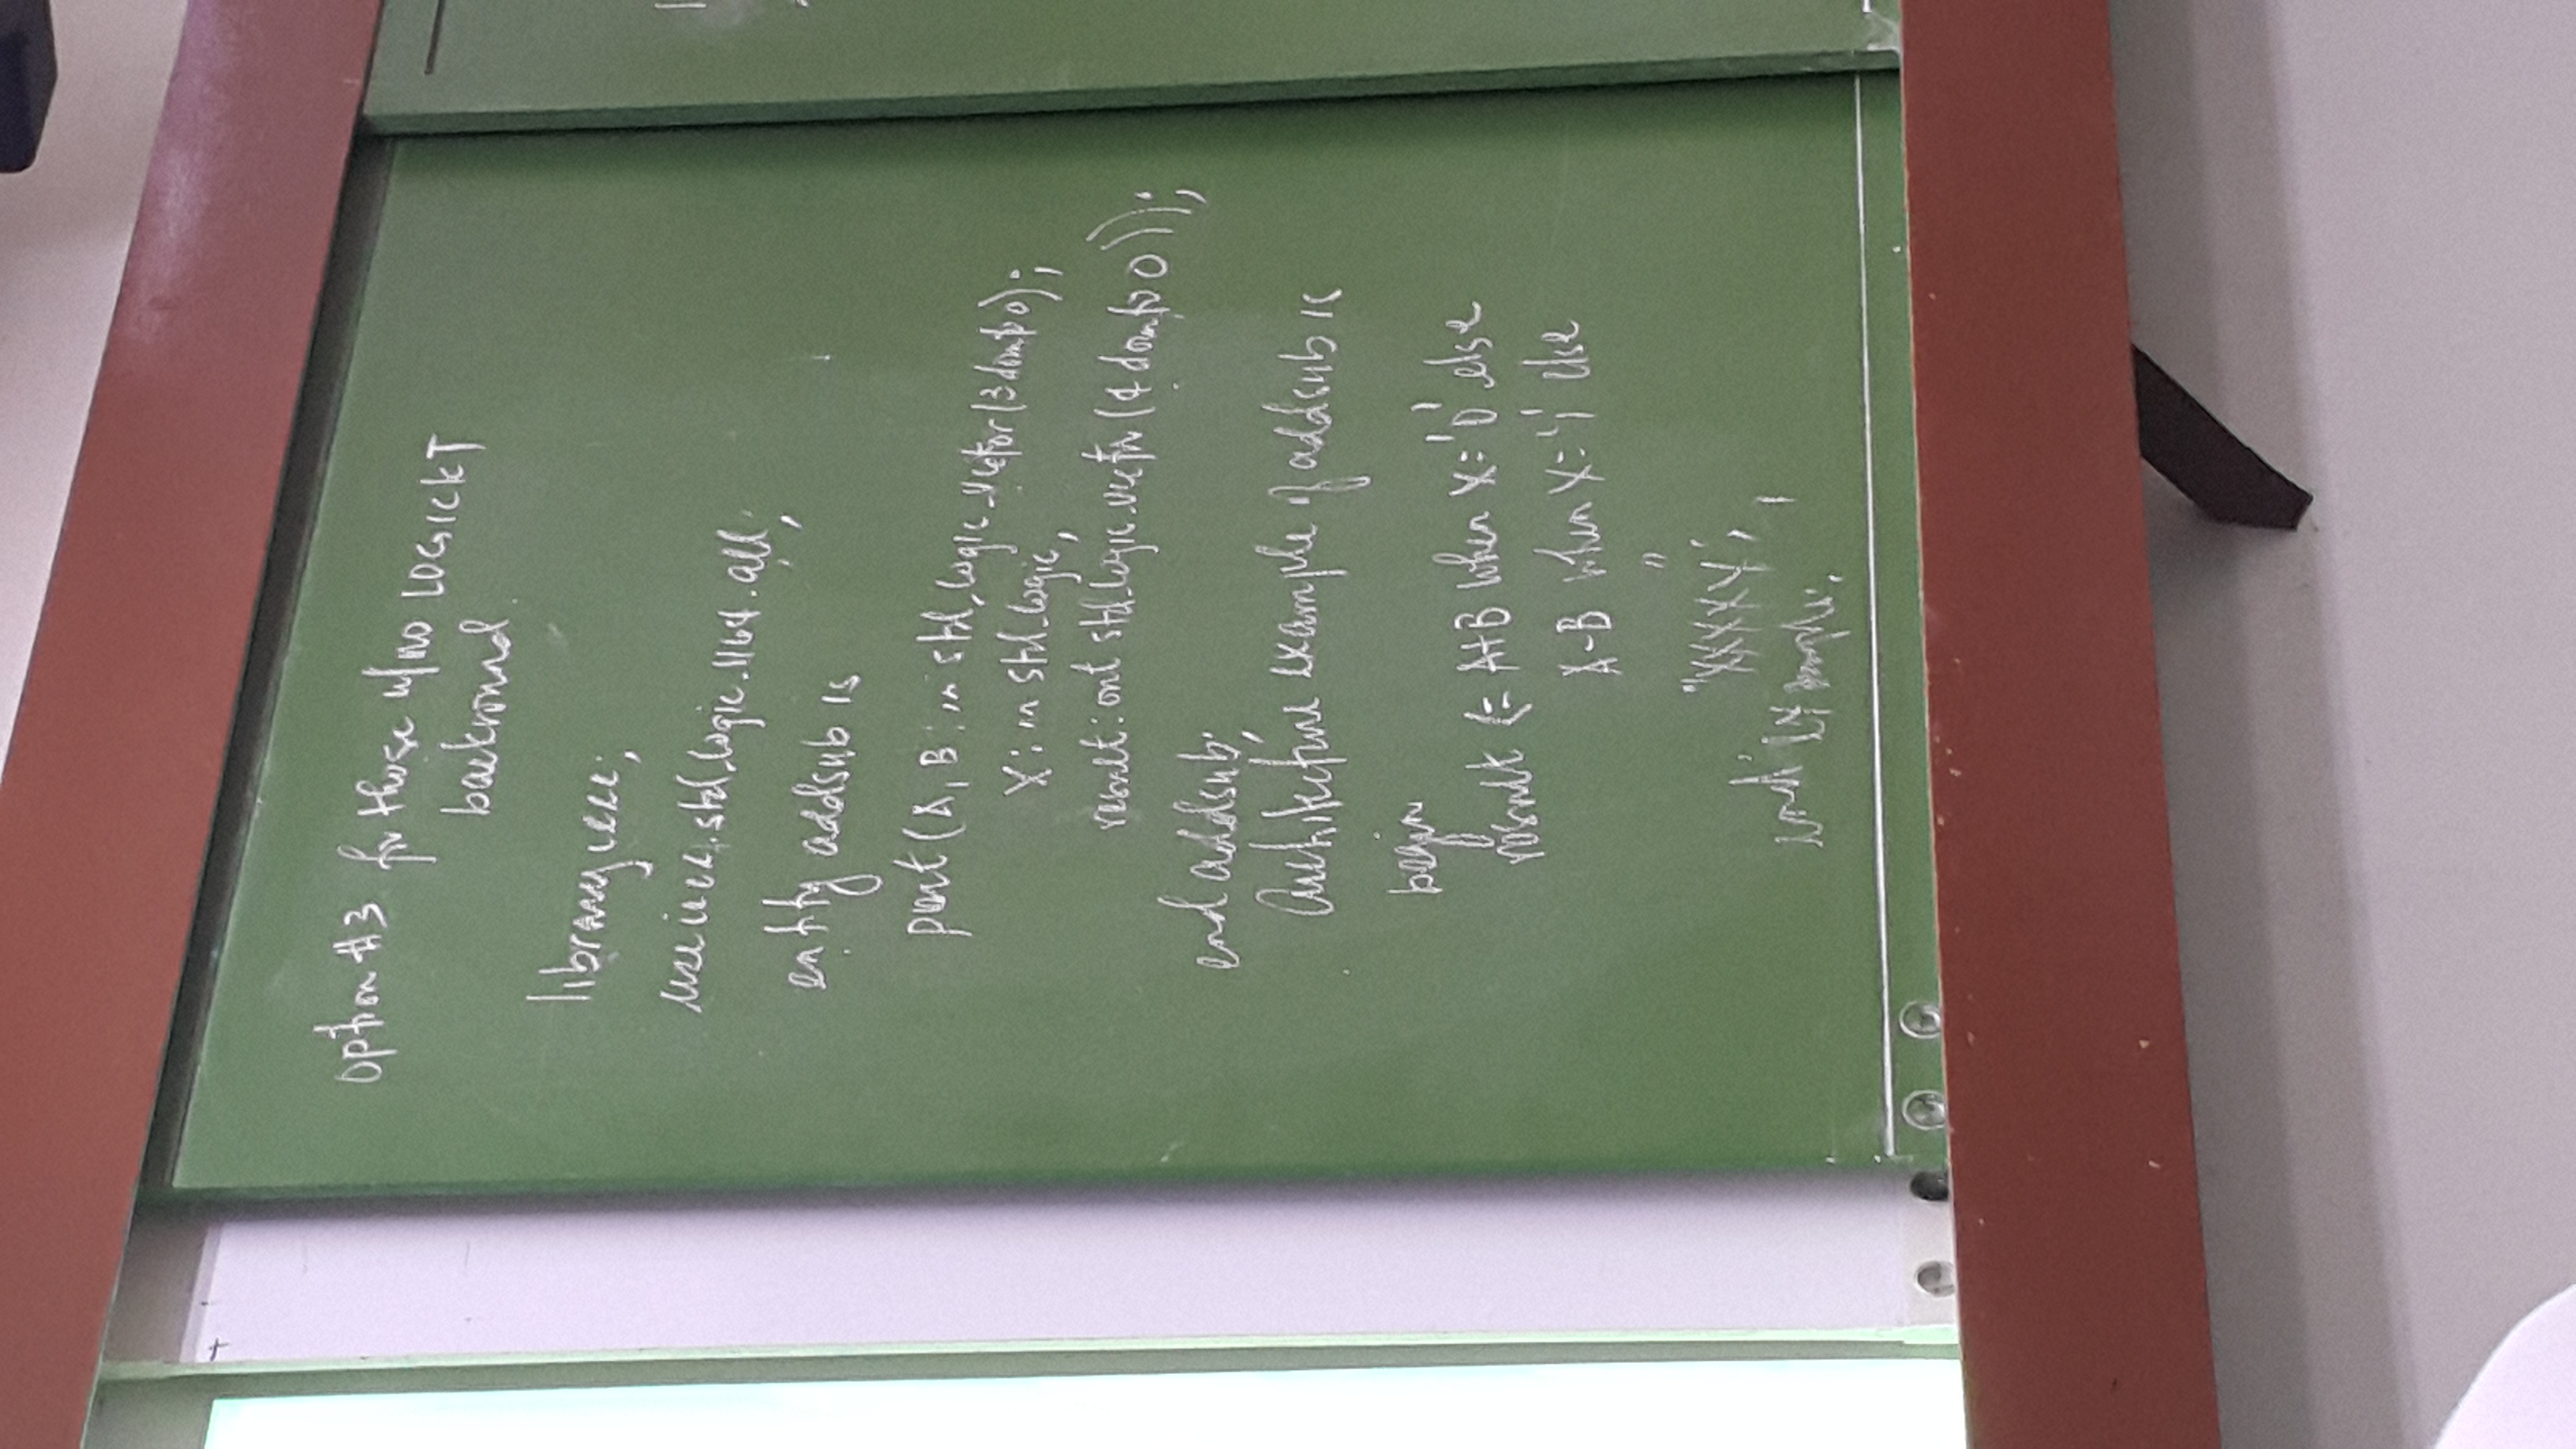 option #3 for those w/no LOGICKT
backround.
library ieee;
use ieee.std_logic_1164.all;
entity addsub is
port (A, B : in std_logic_vector (3 downto 0);
X : in std_logic;
result : out std_logic_vector (4 downto 0));
end addsub;
Architecture example of addsub is
begin
result <= A+B when X='0' else
A-B when X='1' else
"XXXXX";
end example;